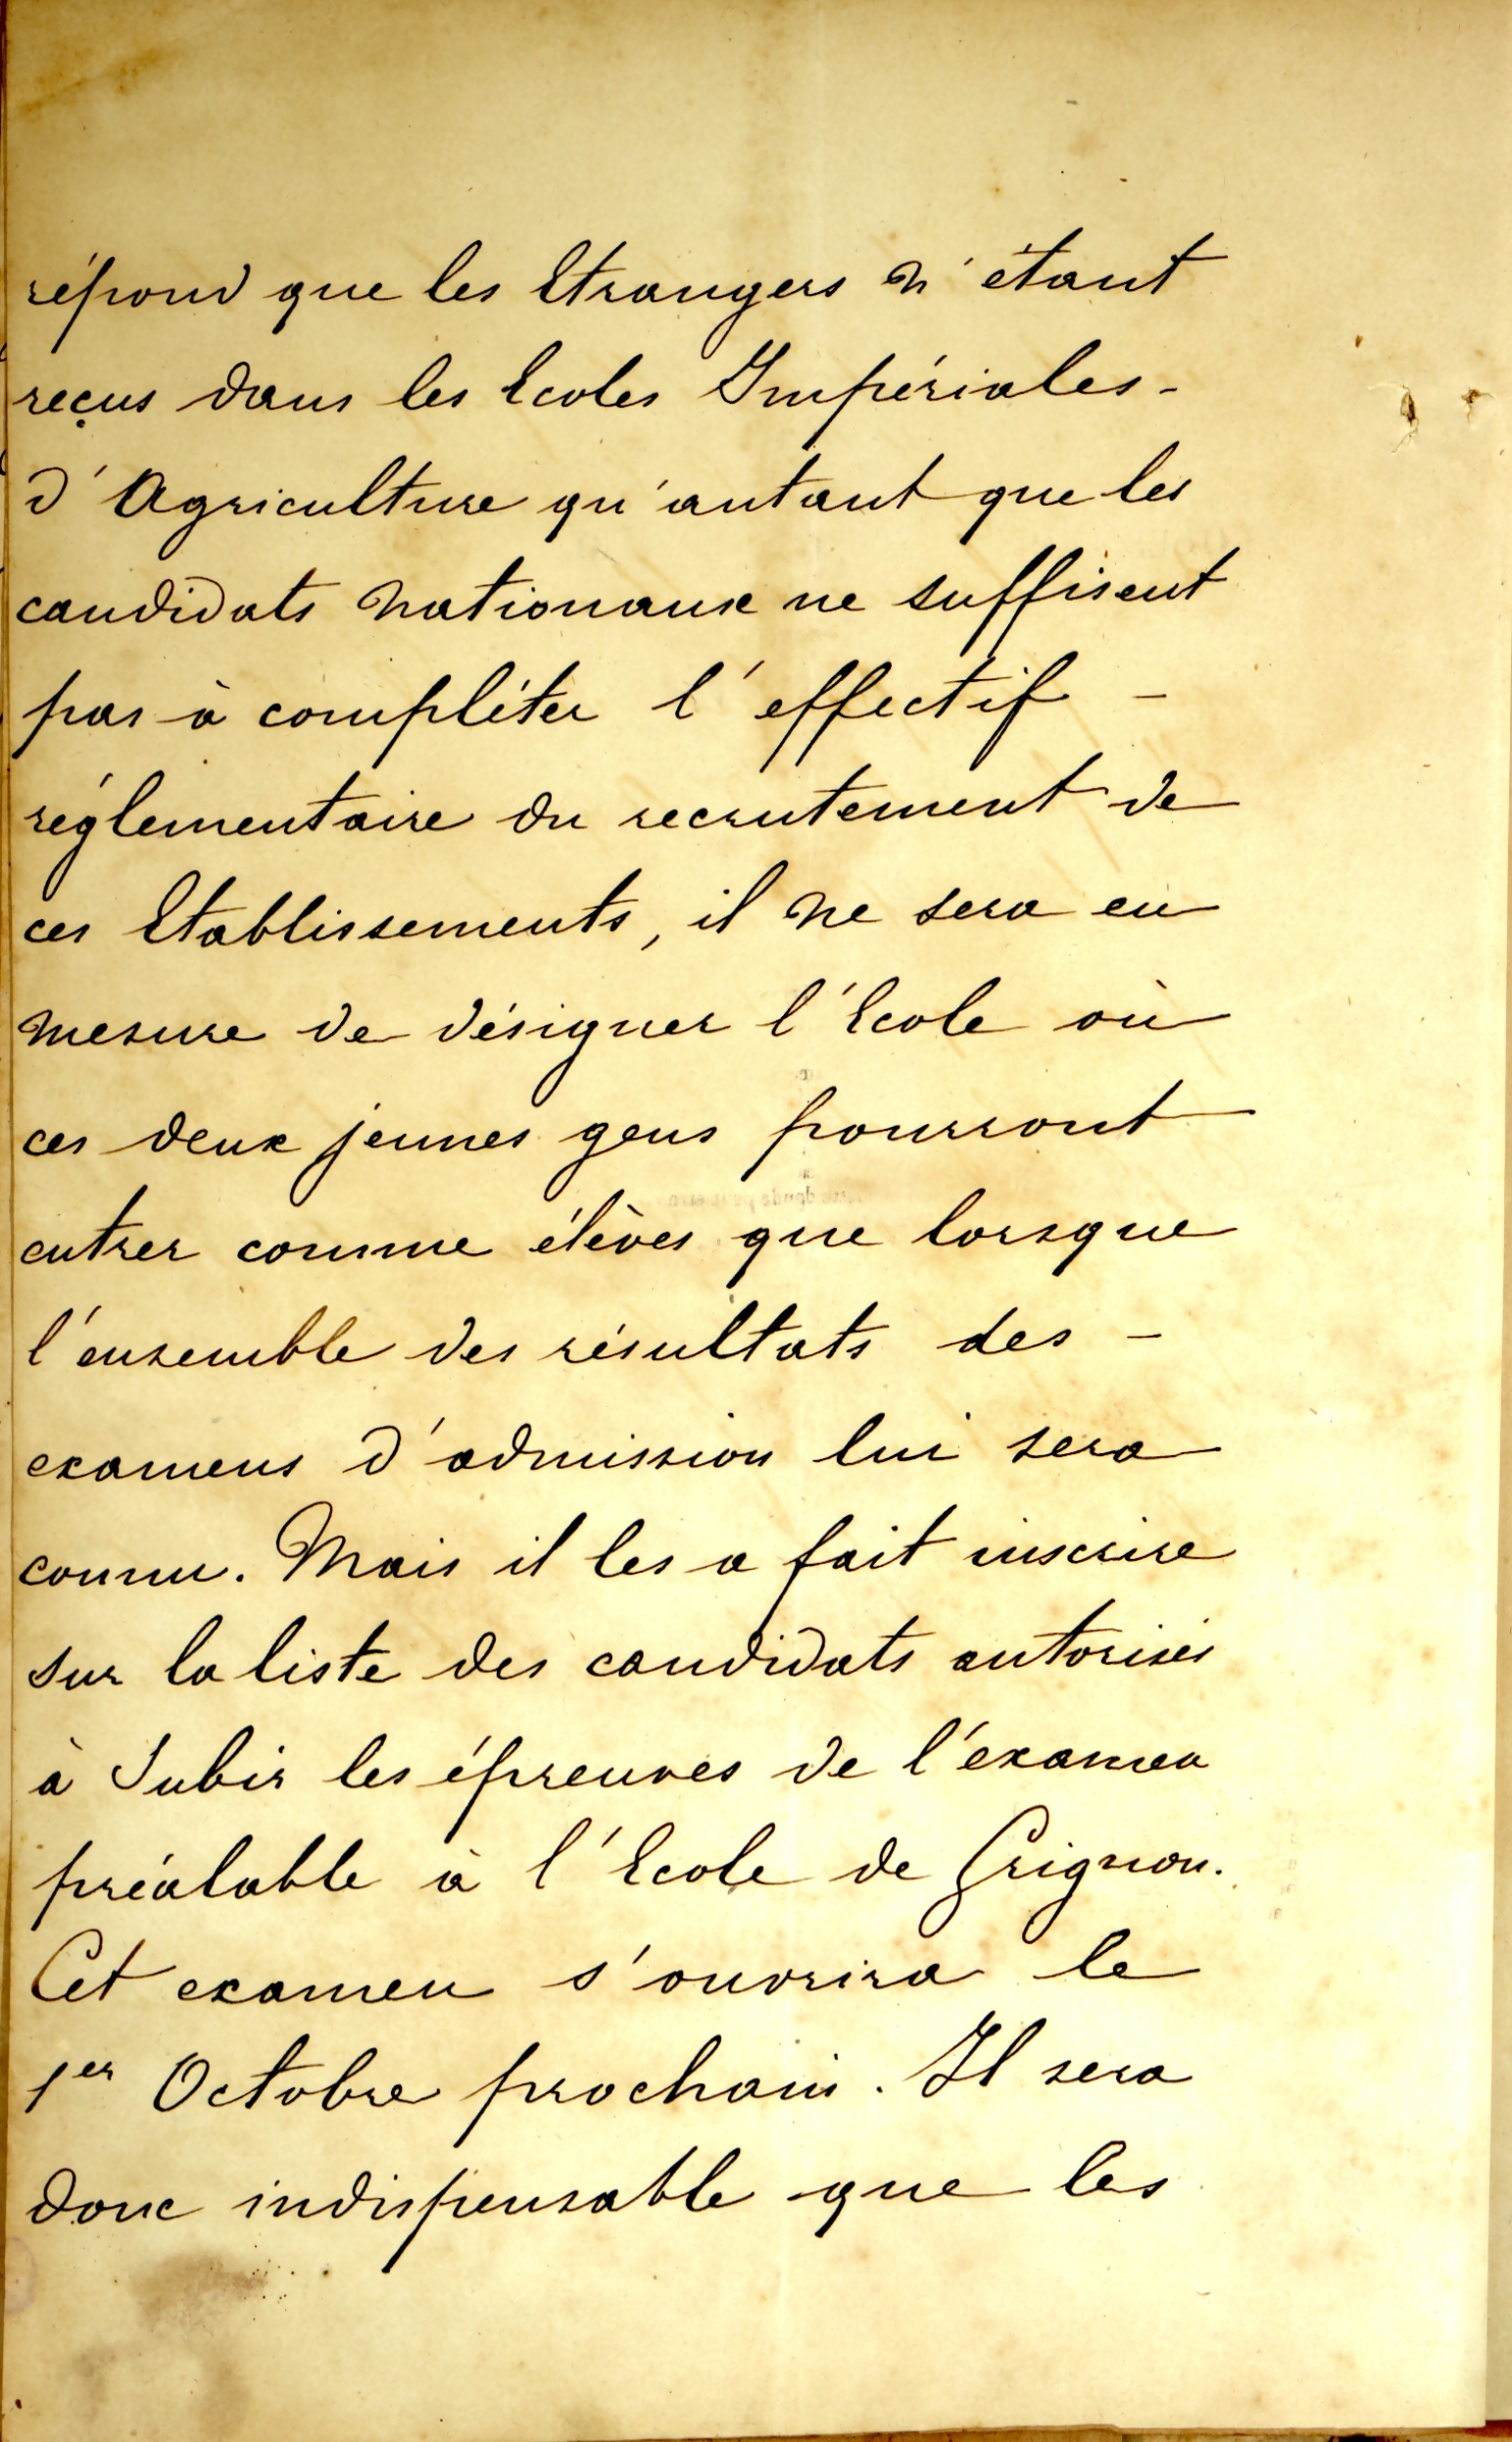 répond que les Etrangers n'étant
reçus dans les Ecoles Impériales -
d'Agriculture qu'autant que les
candidats nationaux ne suffisent
pas à compléter l'effectif -
réglementaire du recrutement de
ces Etablissements, il ne sera en
mesure de désigner l'Ecole où
ces deux jeunes gens pourront
entrer comme élèves que lorsque
l'ensemble des résultats des -
examens d'admission lui sera
connu. Mais il les a fait inscrire
sur la liste des candidats autorisés
à Subir les épreuves de l'examen
préalable à l'Ecole de Grignon.
Cet examen s'ouvrira le
1er Octobre prochain. Il sera
donc indispensable que les